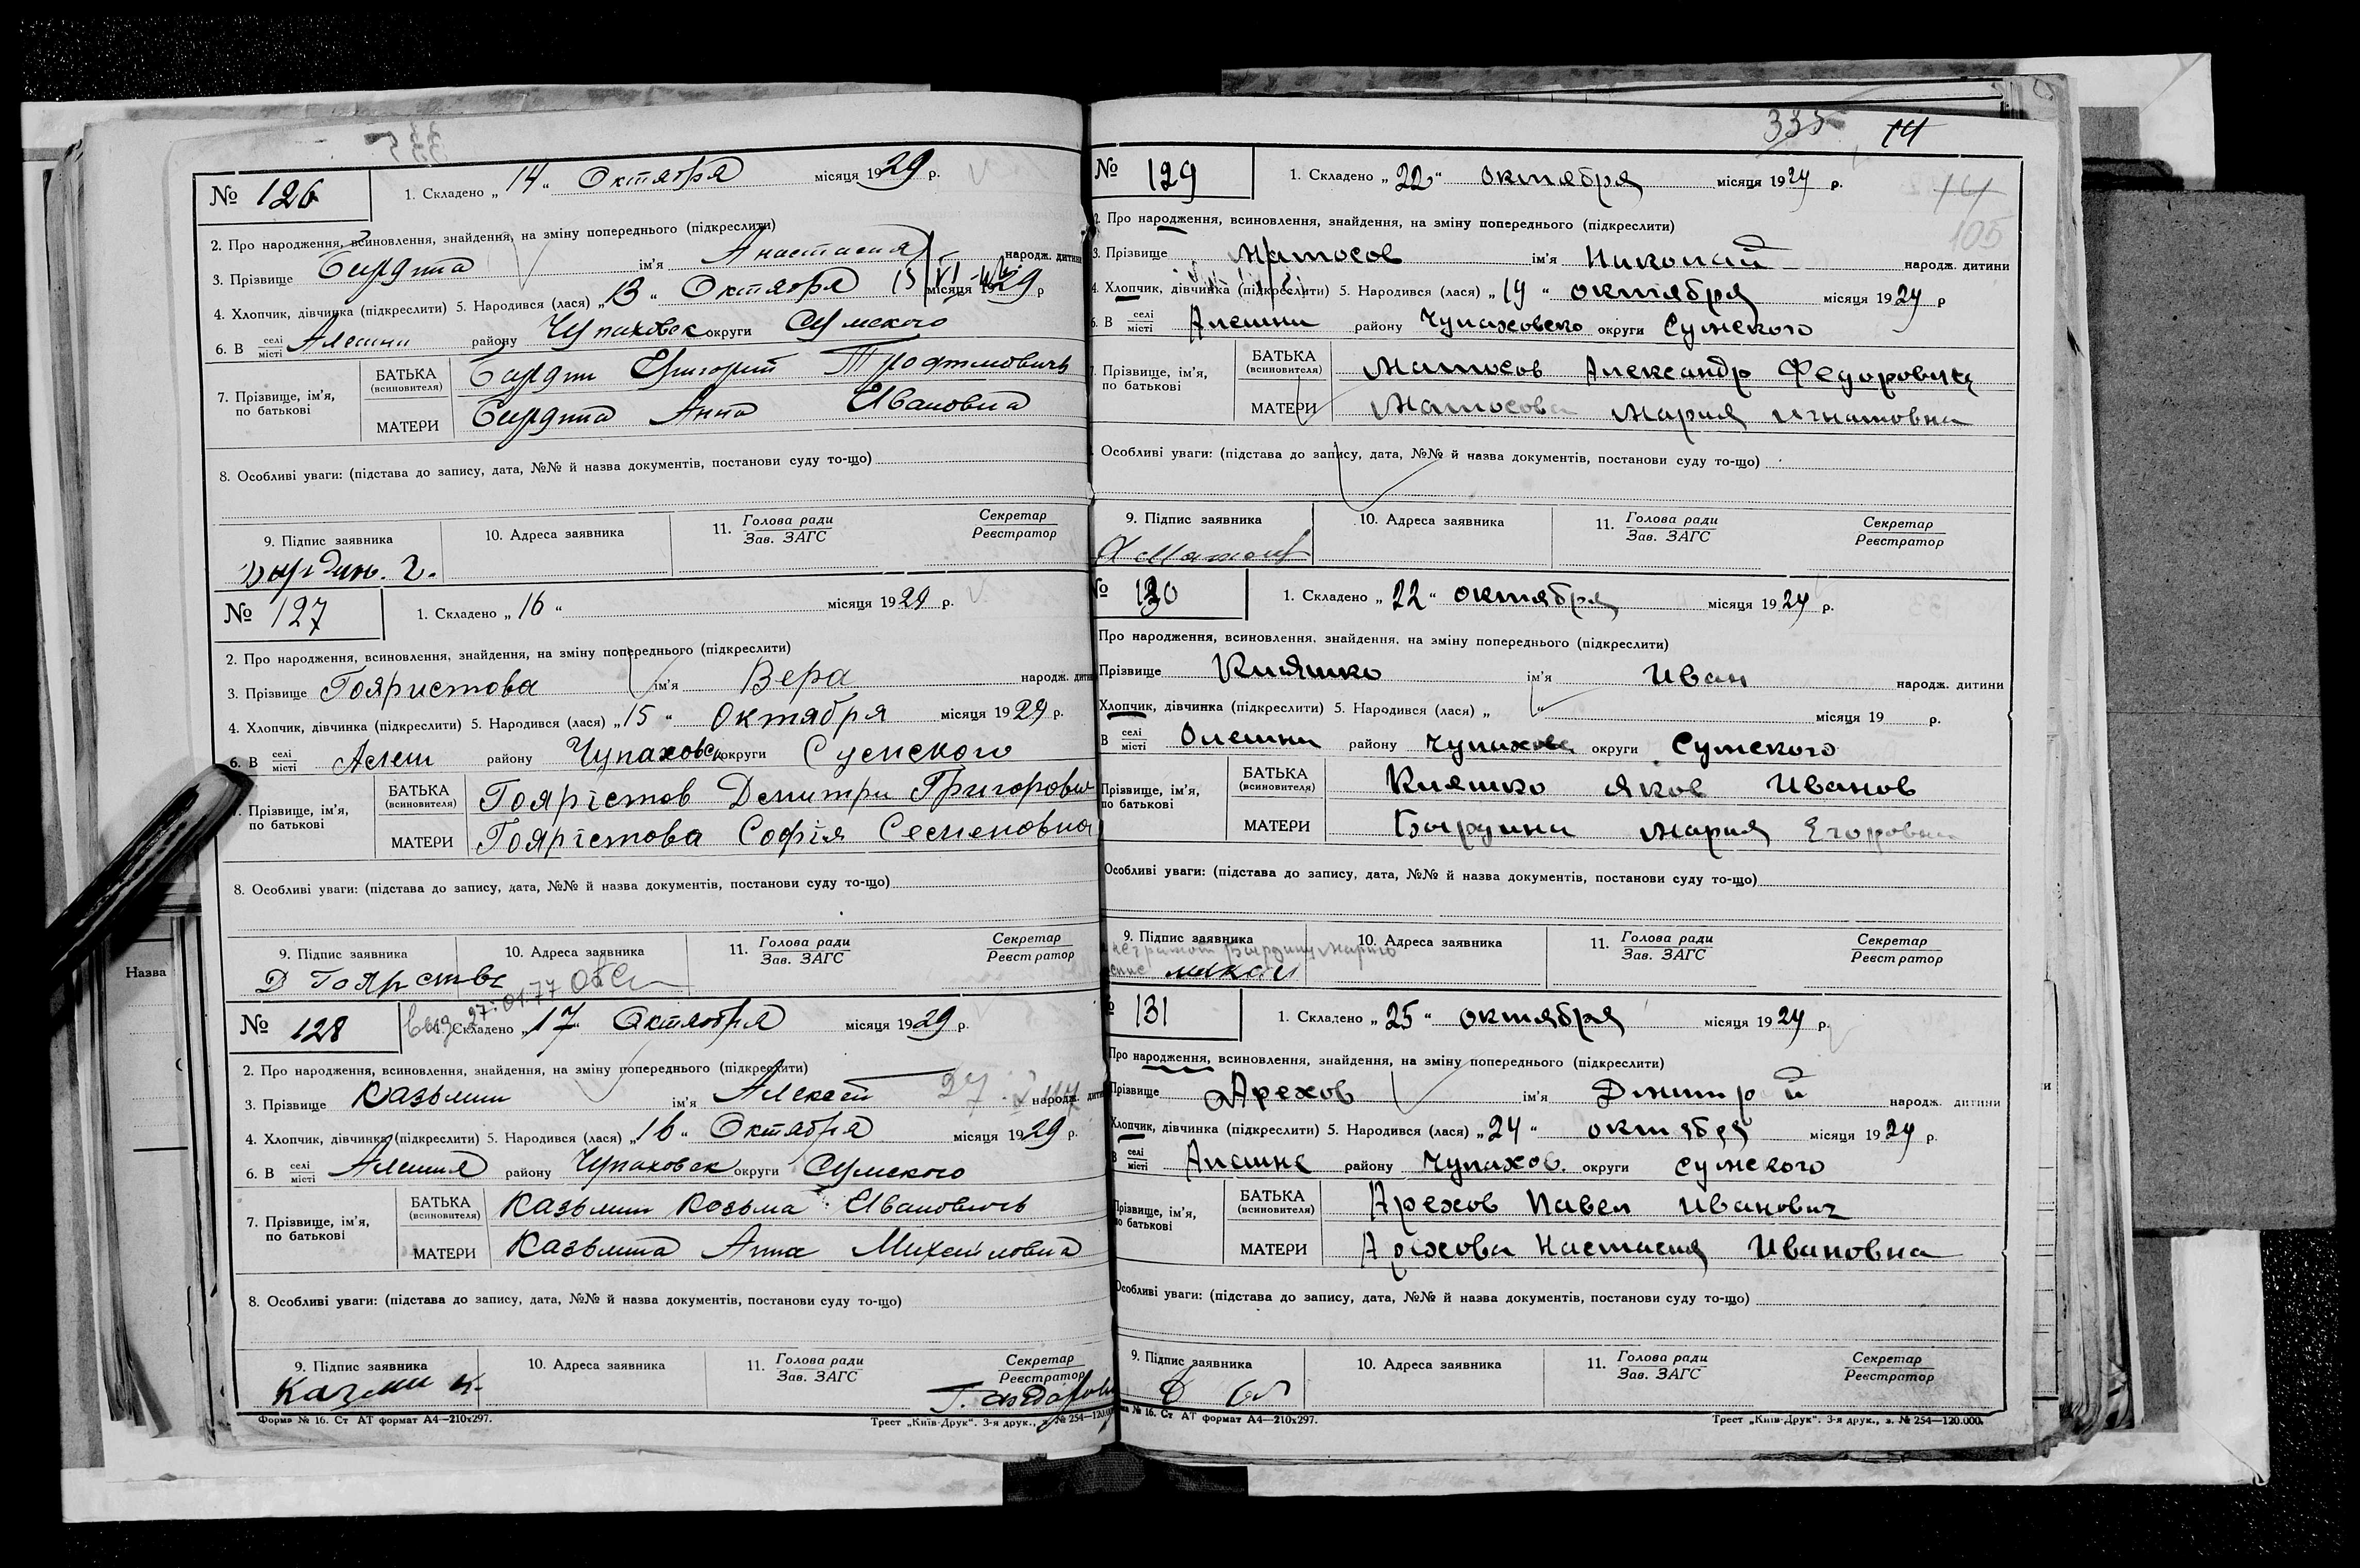 № 126
1. Складено „14“ Октября місяця 1929 р.
2. Про народження, всиновлення, знайдення, на зміну попереднього (підкреслити)
3. Прізвище ім'я Анастасия народж. дитини
4. Хлопчик, дівчинка (підкреслити) 5. Народився (лася) „13“ Октября місяця 1929 р
6. В селі місті Алешни району Чупаховск округи Сумского
7. Прізвище, ім'я, по батькові
БАТЬКА (всиновителя) Григорий Трофимовичь
МАТЕРИ Анна Ивановна
8. Особливі уваги: (підстава до запису, дата, №№ й назва документів, постанови суду то-що)
9. Підпис заявника 10. Адреса заявника 11. Голова ради Зав. ЗАГС Секретар Реєстратор
№ 127
1. Складено „16“ місяця 1929 р.
2. Про народження, всиновлення, знайдення, на зміну попереднього (підкреслити)
3. Прізвище Гояристова ім'я Вера народж.
4. Хлопчик, дівчинка (підкреслити) 5. Народився (лася) „15“ Октября місяця 1929 р.
6. В селі місті Алеш району Чупаховск округи Сумского
Прізвище, ім'я, по батькові
БАТЬКА (всиновителя) Гоярістов Демитри Григорович
МАТЕРИ Гоярістова Софія Семеновна
8. Особливі уваги: (підстава до запису, дата, №№ й назва документів, постанови суду то-що)
9. Підпис заявника 10. Адреса заявника 11. Голова ради Зав. ЗАГС Секретар Реєстратор
Назва
№ 128
Складено „17“ Октября місяця 1929 р.
2. Про народження, всиновлення, знайдення, на зміну попереднього (підкреслити)
3. Прізвище Казьмин ім'я Алексей народж.
4. Хлопчик, дівчинка (підкреслити) 5. Народився (лася) „16“ Октября місяця 1929 р.
6. В селі місті Алешня району Чупаховск округи Сумского
7. Прізвище, ім'я, по батькові
БАТЬКА (всиновителя) Казьмин Козьма Ивановичь
МАТЕРИ Казьмина Анна Михайловна
8. Особливі уваги: (підстава до запису, дата, №№ й назва документів, постанови суду то-що)
9. Підпис заявника 10. Адреса заявника 11. Голова ради Зав. ЗАГС Секретар Реєстратор
Казмин К.
Форма № 16. Ст АТ формат А4—210х297. Трест „Київ-Друк“. 3-я друк., з. № 254—120.000
335 14
14
105
№ 129
1. Складено „22“ октября місяця 1929 р.
2. Про народження, всиновлення, знайдення, на зміну попереднього (підкреслити)
3. Прізвище Матосов ім'я Николай народж. дитини
4. Хлопчик, дівчинка (підкреслити) 5. Народився (лася) „19“ октября місяця 1929 р
6. В селі місті Алешни району Чупаховско округи Сумского
Прізвище, ім'я, по батькові
БАТЬКА (всиновителя) Матосов Александр Федорович
МАТЕРИ Матосова Мария Игнатовна
Особливі уваги: (підстава до запису, дата, №№ й назва документів, постанови суду то-що)
9. Підпис заявника 10. Адреса заявника 11. Голова ради Зав. ЗАГС Секретар Реєстратор
№ 130
1. Складено „22“ октября місяця 1929 р.
Про народження, всиновлення, знайдення, на зміну попереднього (підкреслити)
Прізвище Кияшко ім'я Иван народж. дитини
Хлопчик, дівчинка (підкреслити) 5. Народився (лася) „ “ місяця 19 р.
В селі місті Олешни району Чупахове округи Сумского
Прізвище, ім'я, по батькові
БАТЬКА (всиновителя) Кияшко Яков Иванов
МАТЕРИ Бырдина Мария Егоровна
Особливі уваги: (підстава до запису, дата, №№ й назва документів, постанови суду то-що)
9. Підпис заявника 10. Адреса заявника 11. Голова ради Зав. ЗАГС Секретар Реєстратор
131
1. Складено „25“ октября місяця 1929 р.
Про народження, всиновлення, знайдення, на зміну попереднього (підкреслити)
Прізвище Арехов ім'я Дмитрий народж. дитини
Хлопчик, дівчинка (підкреслити) 5. Народився (лася) „24“ октября місяця 1929 р.
В селі місті Алешне району Чупахов. округи Сумского
Прізвище, ім'я, по батькові
БАТЬКА (всиновителя) Арехов Павел Иванович
МАТЕРИ Арехова Настасия Ивановна
Особливі уваги: (підстава до запису, дата, №№ й назва документів, постанови суду то-що)
9. Підпис заявника 10. Адреса заявника 11. Голова ради Зав. ЗАГС Секретар Реєстратор
№ 16. Ст АТ формат А4—210х297. Трест „Київ-Друк“. 3-я друк., з. № 254—120.000.